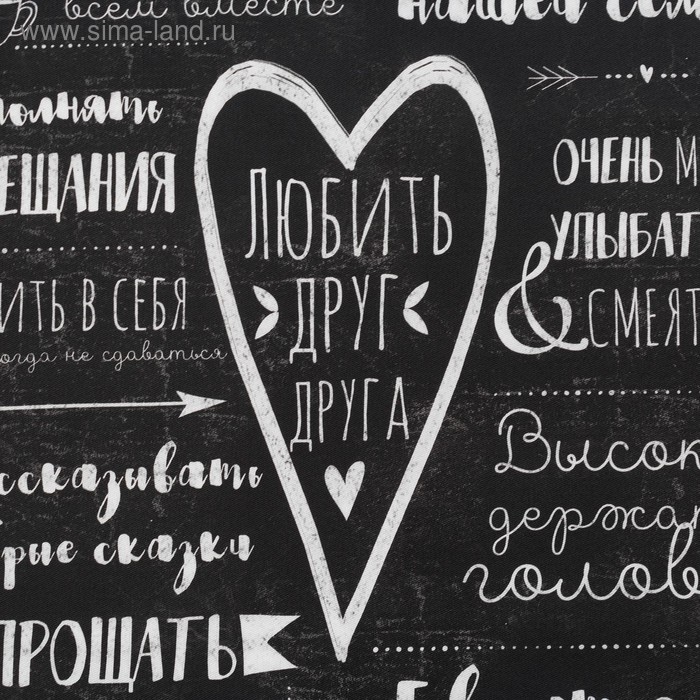 всем вместе
www.sima-land.ru
нашей сем
полнять
ещания
ить в себя
когда не сдаваться
ссказывать
рые сказки
прощать
Любить
друг
друга
очень м
улыбат
& смеят
Высок
держат
голов